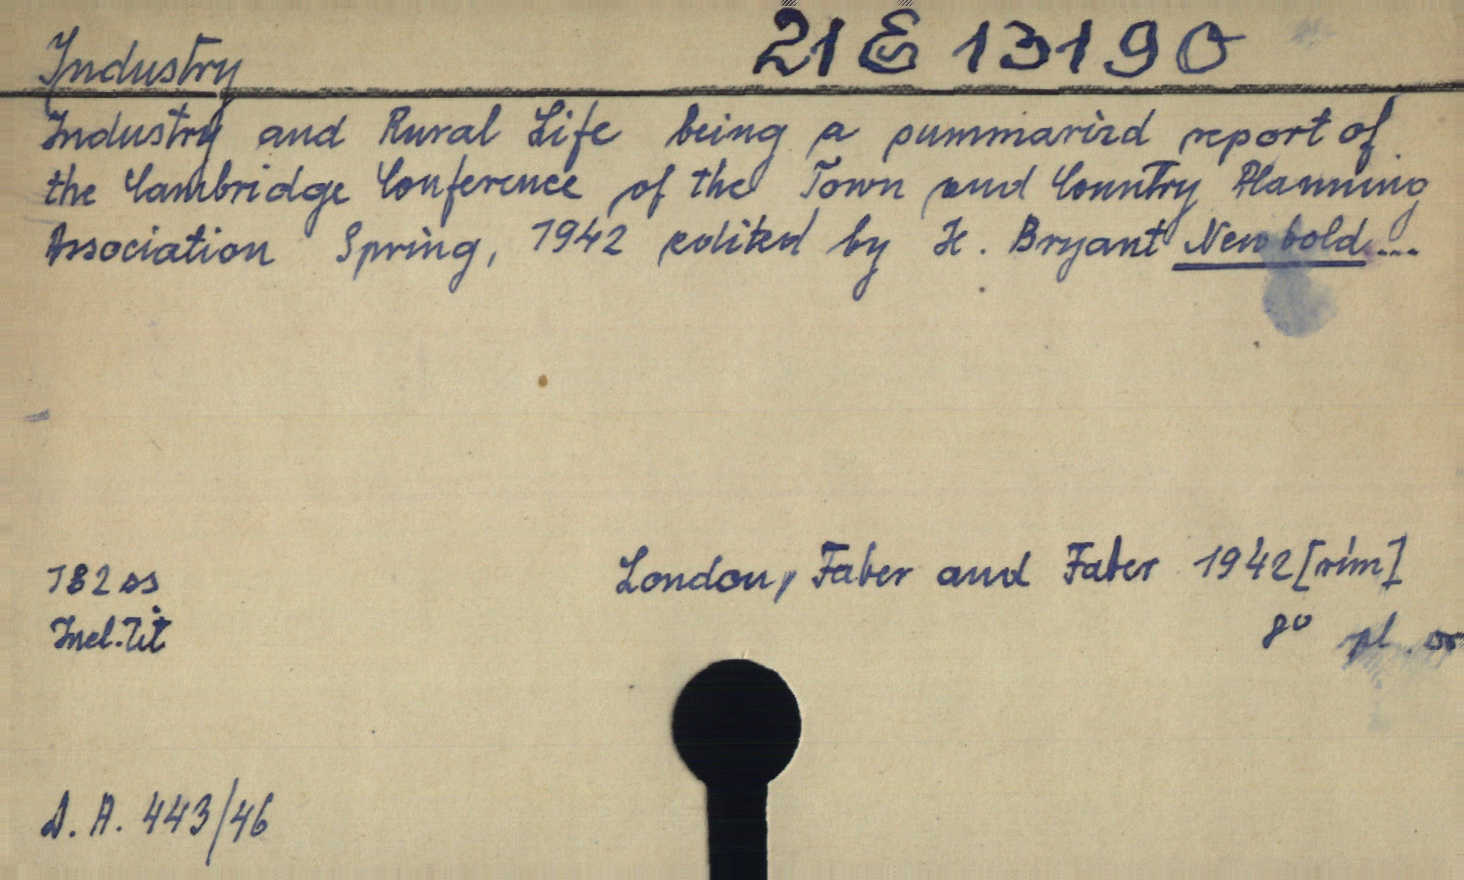 Industry
21 E 13190
Industry and Rural Life being a summarizd report of
the Cambridge Conference of the Town and Country Planning
Association Spring, 1942 edited by H. Bryant Newbold...
London, Faber and Faber 1942 [rim]
182 ss
8° pl.
Incl. Tit
D. A. 443/46